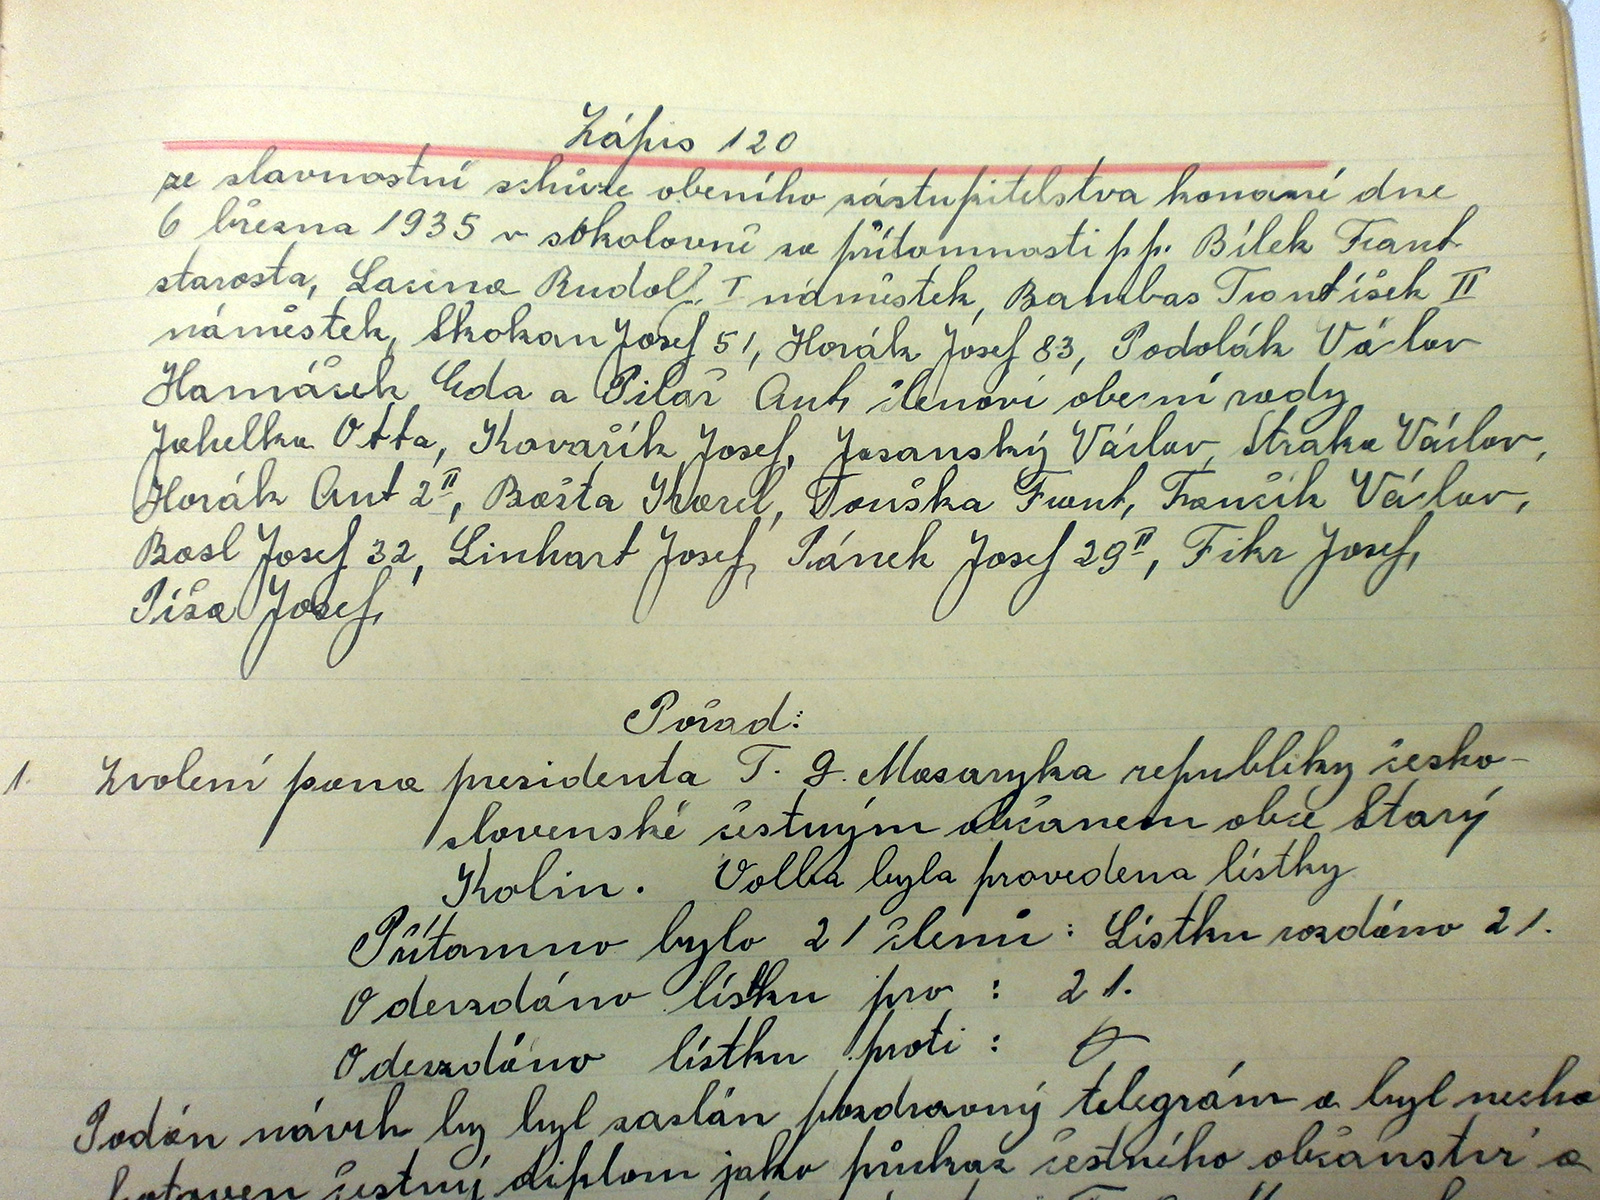 Zápis 120
ze slavnostní schůze obeního zástupitelstva konané dne
6 března 1935 v sokolovně za přítomnosti pp. Bílek Frant
starosta, Lacina Rudolf I náměstek, Bambas František II
náměstek, Skokan Josef 51, Horák Josef 83, Podolák Václav
Hamáček Eda a Pilař Ant, členové obecní rady
Jahelka Otta, Kovařík Josef, Josanský Václav, Straka Václav,
Horák Ant 2II, Bašta Karel, Touška Frant, Frančík Václav,
Basl Josef 32, Linhart Josef, Pánek Josef 29II, Fikr Josef,
Píša Josef,
Pořad:
1. Zvolení pana presidenta T. G. Masaryka republiky česko-
slovenské čestným občanem obce Starý
Kolin. Volba byla provedena lístky
Přítomno bylo 21 členů: Lístku rozdáno 21.
Odevzdáno lístku pro : 21.
Odevzdáno lístku proti :
Podán návrh by byl zaslán pozdravný telegrám a byl necha
hotoven čestný diplom jako průkaz čestného občanství a